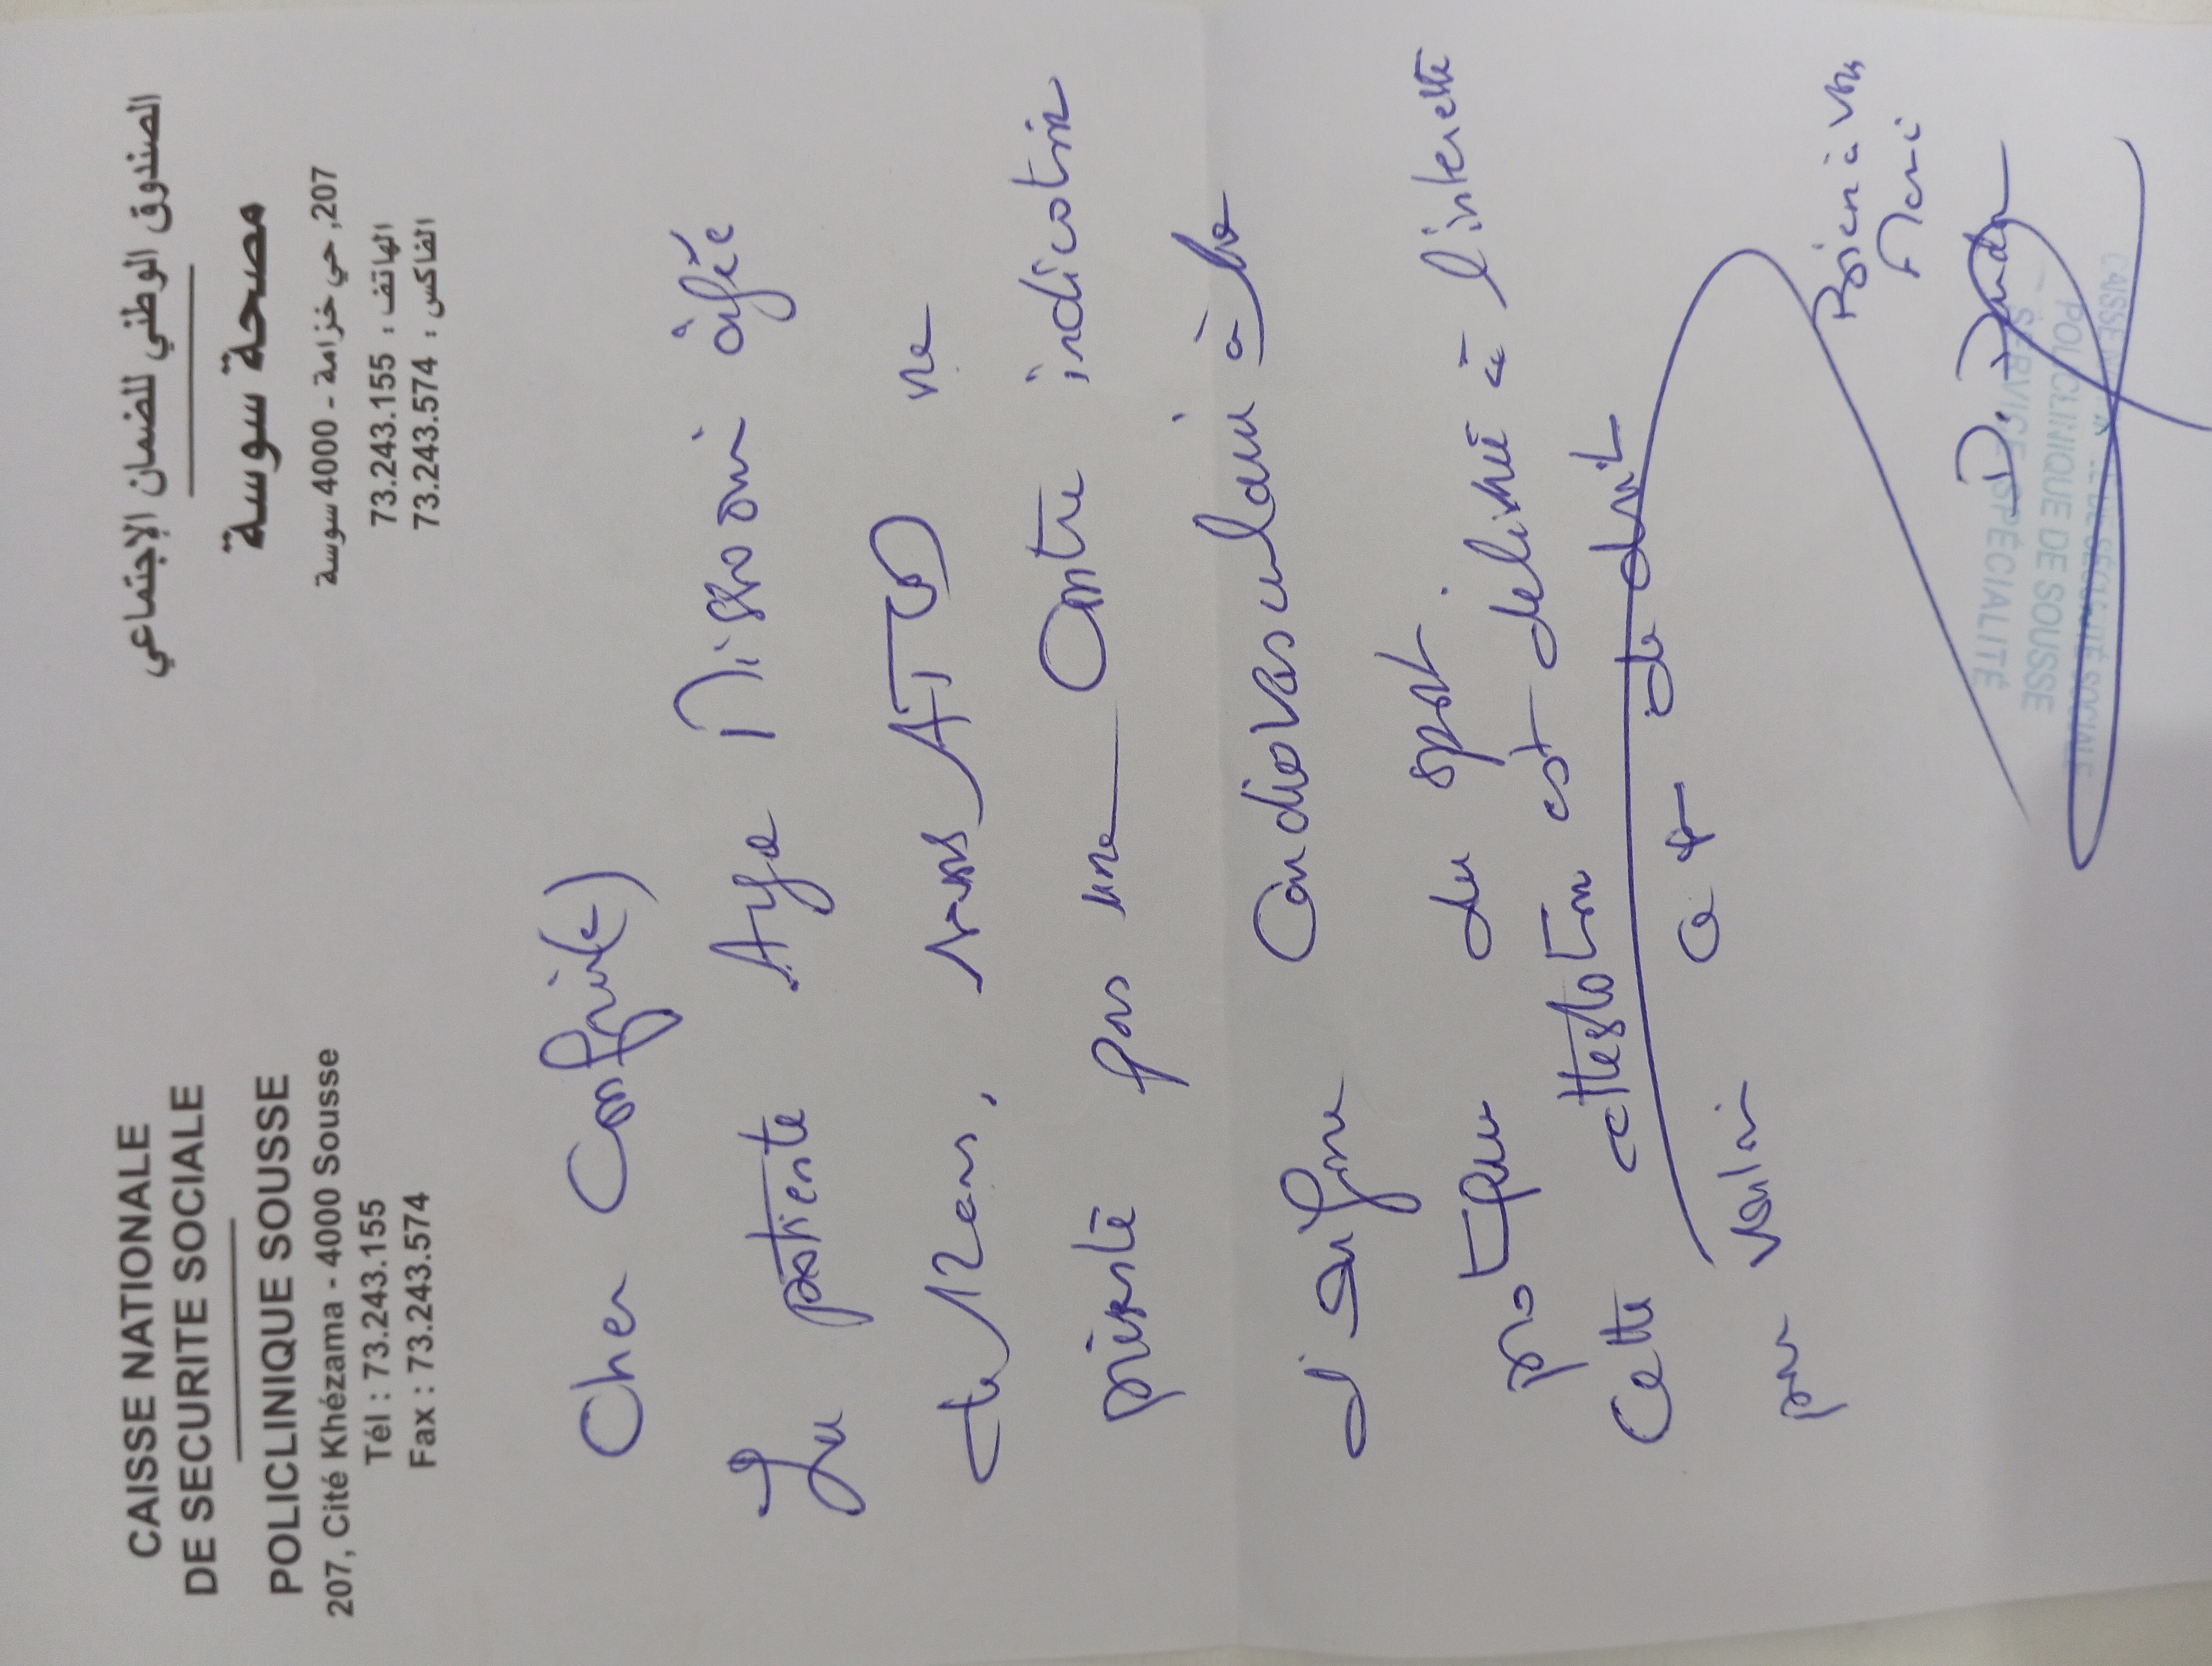 CAISSE NATIONALE
DE SECURITE SOCIALE
POLICLINIQUE SOUSSE
207, Cité Khézama - 4000 Sousse
Tél : 73.243.155
Fax : 73.243.574
الصندوق الوطني للضمان الإجتماعي
مصحة سوسة
207, حي خزامة - 4000 سوسة
الهاتف : 73.243.155
الفاكس : 73.243.574
Cher Confrère(e)
La patiente Aya Missaoui âgée
de 12 ans, sans ATCD ne
présente pas une Contre indication
d'origine Cardiovasculaire à la
pratique du sport.
Cette attestation est délivré à l'interettè
pour valoir ce de droit
Merci
Dr
CAISSE NATIONALE DE SÉCURITÉ SOCIALE
POLICLINIQUE DE SOUSSE
SERVICE SPÉCIALITÉ